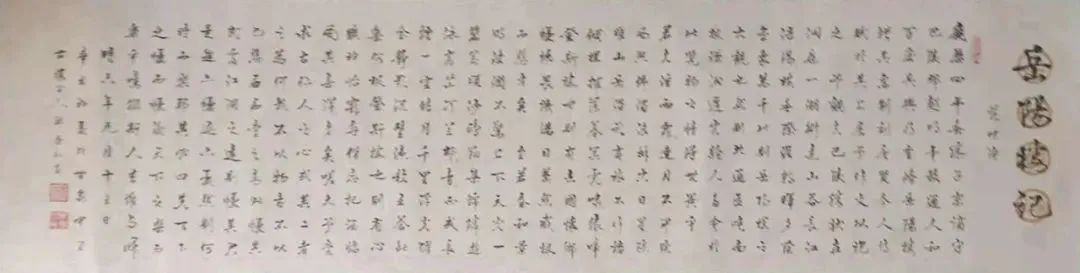 岳陽樓記
范仲淹
慶曆四年春滕子京謫守
巴陵郡越明年政通人和
百廢具興乃重修岳陽樓
增其舊制刻唐賢今人詩
賦於其上屬予作文以記
之 予觀夫巴陵勝狀在
洞庭一湖銜遠山吞長江
浩浩湯湯橫無際涯朝暉夕陰
氣象萬千此則岳陽樓之
大觀也然則北通巫峽南
極瀟湘遷客騷人多會於
此覽物之情得無異乎
若夫淫雨霏霏連月不開陰
風怒號濁浪排空日星隱
耀山岳潛形商旅不行檣
傾楫摧薄暮冥冥虎嘯猿啼
登斯樓也則有去國懷鄉
憂讒畏譏滿目蕭然感極
而悲者矣 至若春和景
明波瀾不驚上下天光一
碧萬頃沙鷗翔集錦鱗游
泳岸芷汀蘭郁郁青青而或長
煙一空皓月千里浮光躍
金靜影沉璧漁歌互答此
樂何極登斯樓也則有心
曠神怡寵辱偕忘把酒臨
風其喜洋洋者矣嗟夫予嘗
求古仁人之心或異二者
之為何哉不以物喜不以
己悲居廟堂之高則憂其
民處江湖之遠則憂其君
是進亦憂退亦憂然則何
時而樂耶其必曰先天下
之憂而憂後天下之樂而
樂乎噫微斯人吾誰與歸
時六年九月十五日
辛丑初夏